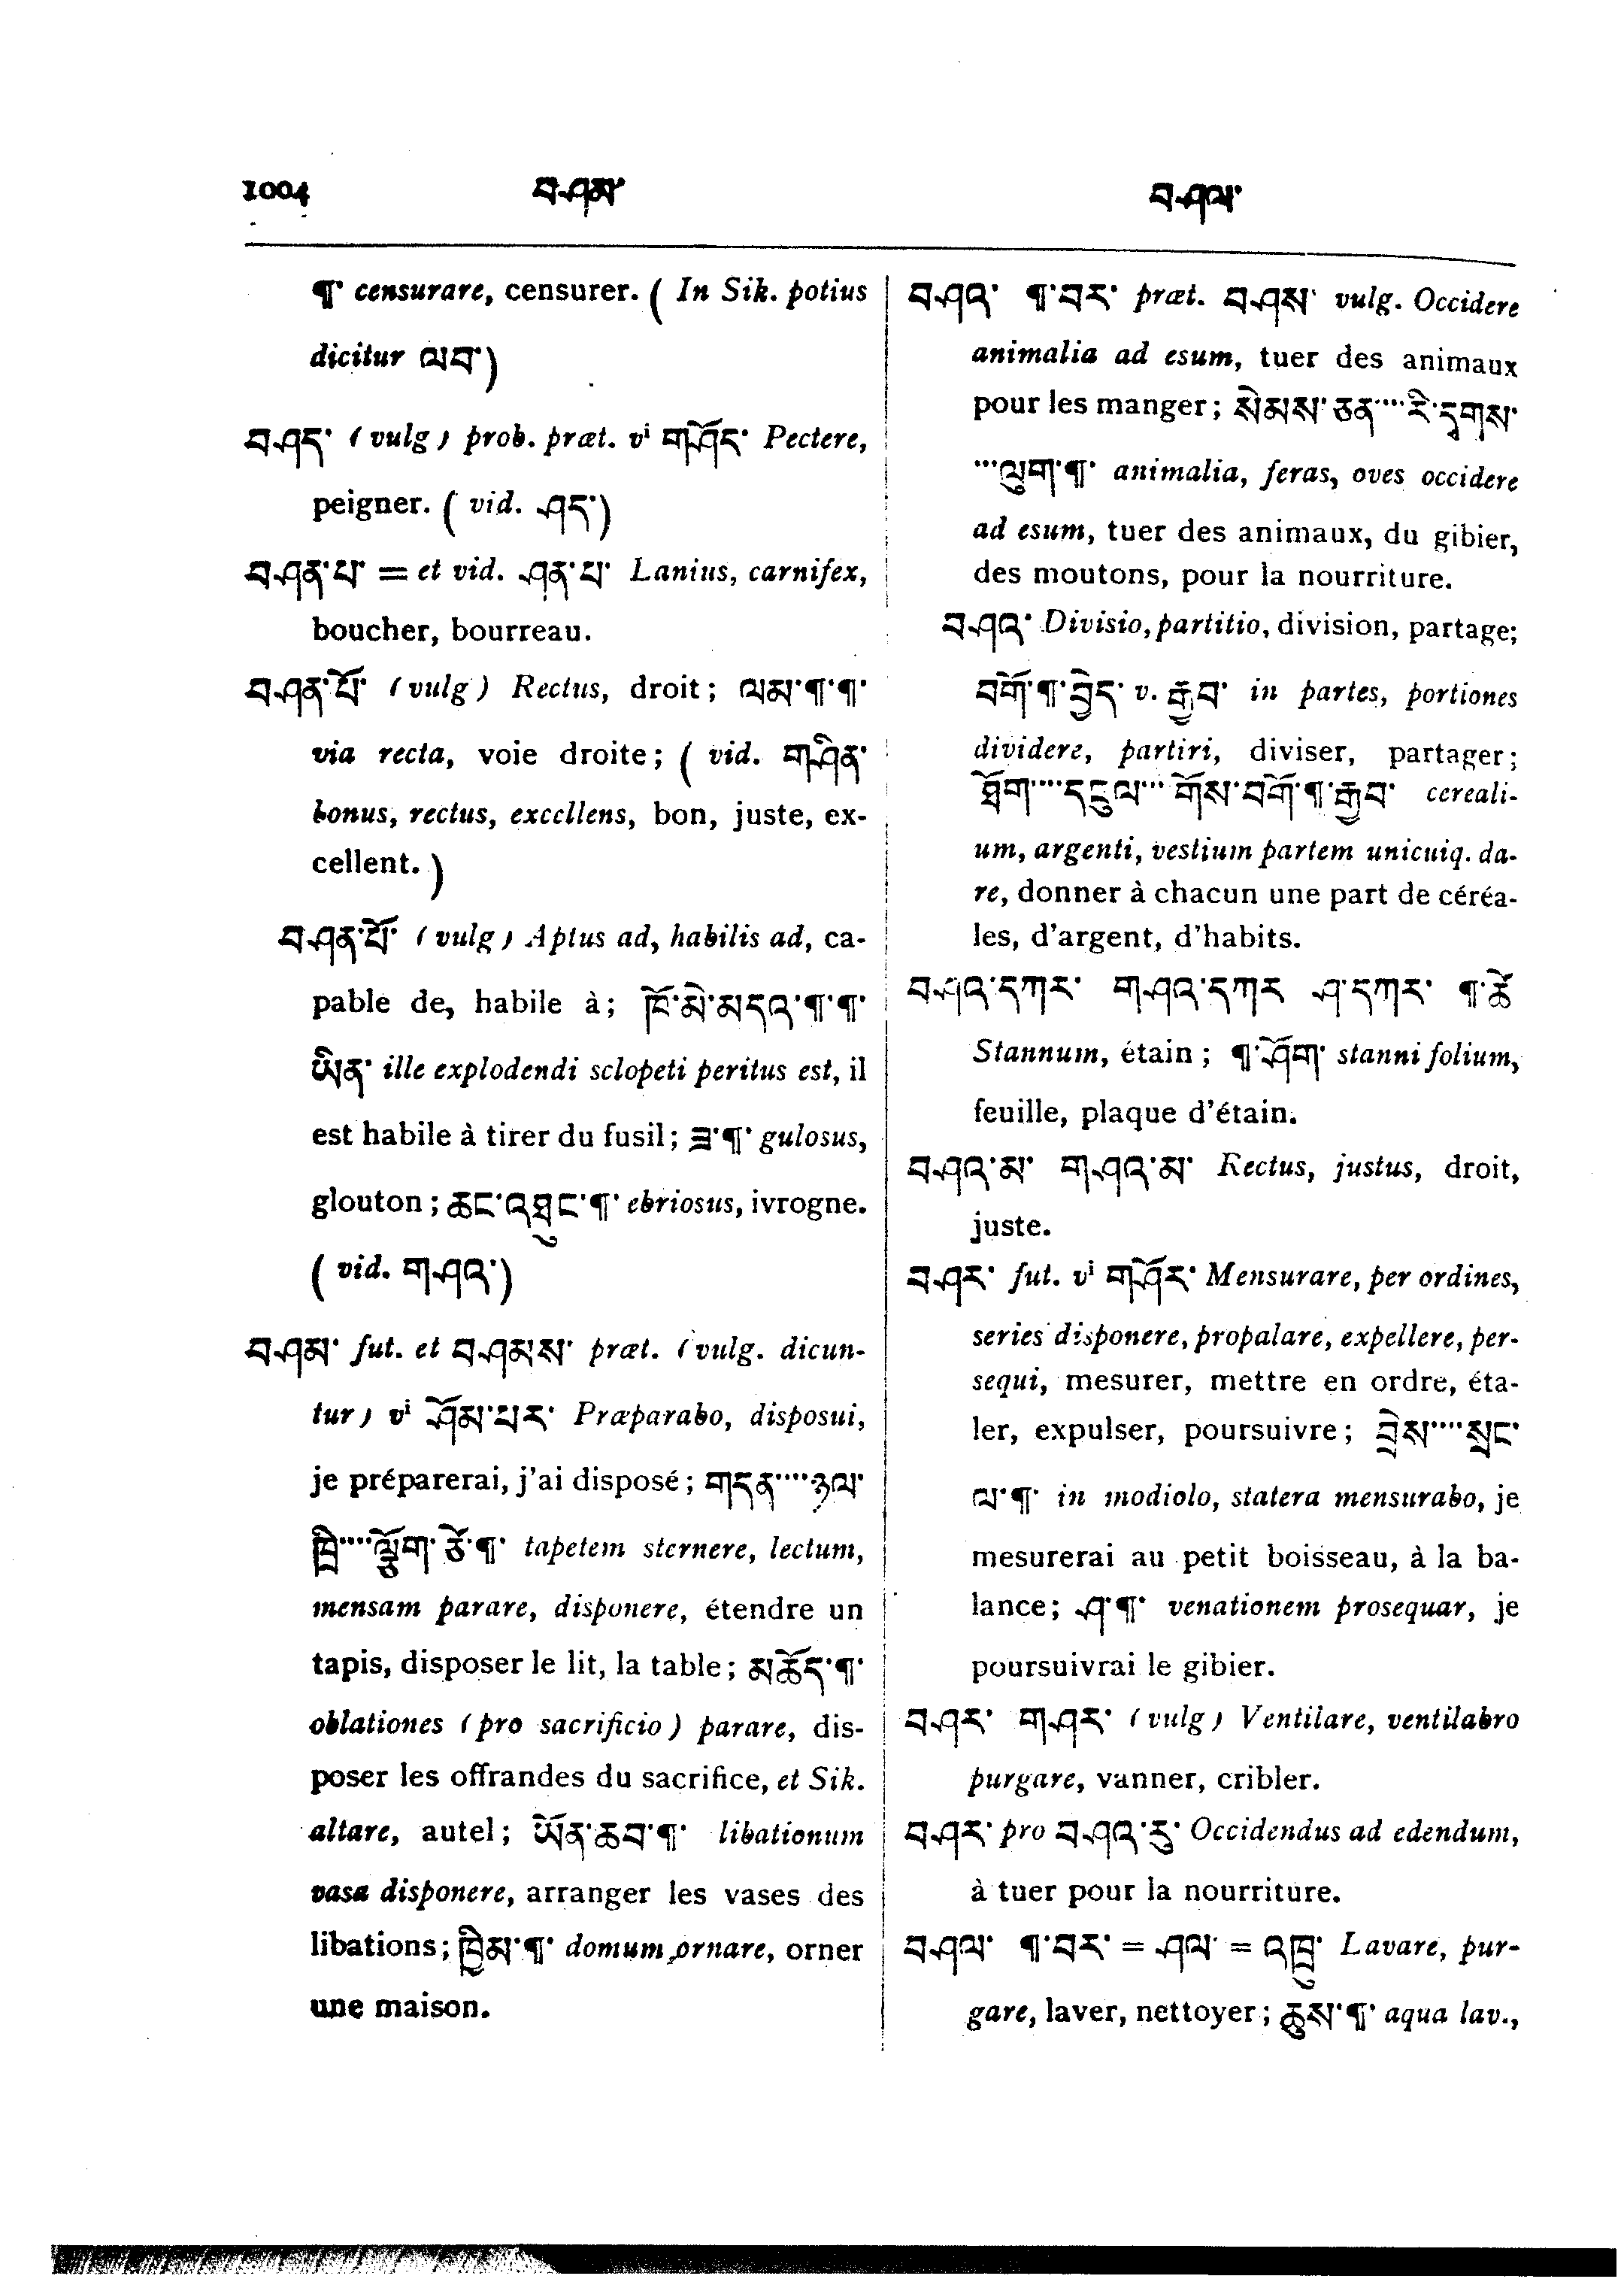 1004 བཤམ་ བཤལ་
¶་ censurare, censurer. ( In Sik. potius
dicitur ལབ་)
བཤད་ (vulg) prob. præt. vⁱ གཤོད་ Pectere,
peigner. ( vid. ཤད་)
བཤན་པ་ = et vid. ཤན་པ་ Lanius, carnifex,
boucher, bourreau.
བཤན་པོ་ (vulg) Rectus, droit; ལམ་¶་¶་
via recta, voie droite; ( vid. གཤིན་
bonus, rectus, excellens, bon, juste, ex-
cellent. )
བཤན་པོ་ (vulg) Aptus ad, habilis ad, ca-
pable de, habile à; ཁོ་མེ་མདའ་¶་¶་
ཡིན་ ille explodendi sclopeti peritus est, il
est habile à tirer du fusil; ཟ་¶་ gulosus,
glouton; ཆང་འཐུང་¶་ ebriosus, ivrogne.
( vid. གཤའ་)
བཤམ་ fut. et བཤམས་ præt. (vulg. dicun-
tur) vⁱ ཤོམ་པར་ Præparabo, disposui,
je préparerai, j'ai disposé; གདན་···ཉལ་
ཁྲི་···ལྕོག་ཙེ་¶་ tapetem sternere, lectum,
mensam parare, disponere, étendre un
tapis, disposer le lit, la table; མཆོད་¶་
oblationes (pro sacrificio) parare, dis-
poser les offrandes du sacrifice, et Sik.
altare, autel; ཡོན་ཆབ་¶་ libationum
vasa disponere, arranger les vases des
libations; ཁྱིམ་¶་ domum ornare, orner
une maison.
བཤའ་ ¶་བར་ præt. བཤས་ vulg. Occidere
animalia ad esum, tuer des animaux
pour les manger; སེམས་ཅན་···རི་དྭགས་
···ལུག་¶་ animalia, feras, oves occidere
ad esum, tuer des animaux, du gibier,
des moutons, pour la nourriture.
བཤའ་ Divisio, partitio, division, partage;
བགོ་¶་བྱེད་ v. རྒྱབ་ in partes, portiones
dividere, partiri, diviser, partager;
ཐོག་···དངུལ་···གོས་བགོ་¶་རྒྱབ་ cereali-
um, argenti, vestium partem unicuiq. da-
re, donner à chacun une part de céréa-
les, d'argent, d'habits.
བཤའ་དཀར་ གཤའ་དཀར ཤ་དཀར་ ¶་ཚེ
Stannum, étain; ¶་ཤོག་ stanni folium,
feuille, plaque d'étain.
བཤའ་མ་ གཤའ་མ་ Rectus, justus, droit,
juste.
བཤར་ fut. vⁱ གཤོར་ Mensurare, per ordines,
series disponere, propalare, expellere, per-
sequi, mesurer, mettre en ordre, éta-
ler, expulser, poursuivre; བྲེས་···སྲང་
ལ་¶་ in modiolo, statera mensurabo, je
mesurerai au petit boisseau, à la ba-
lance; ཤ་¶་ venationem prosequar, je
poursuivrai le gibier.
བཤར་ གཤར་ (vulg) Ventilare, ventilabro
purgare, vanner, cribler.
བཤར་ pro བཤའ་རུ་ Occidendus ad edendum,
à tuer pour la nourriture.
བཤལ་ ¶་བར་ = ཤལ་ = འཁྲུ་ Lavare, pur-
gare, laver, nettoyer; ཆུས་¶་ aqua lav.,